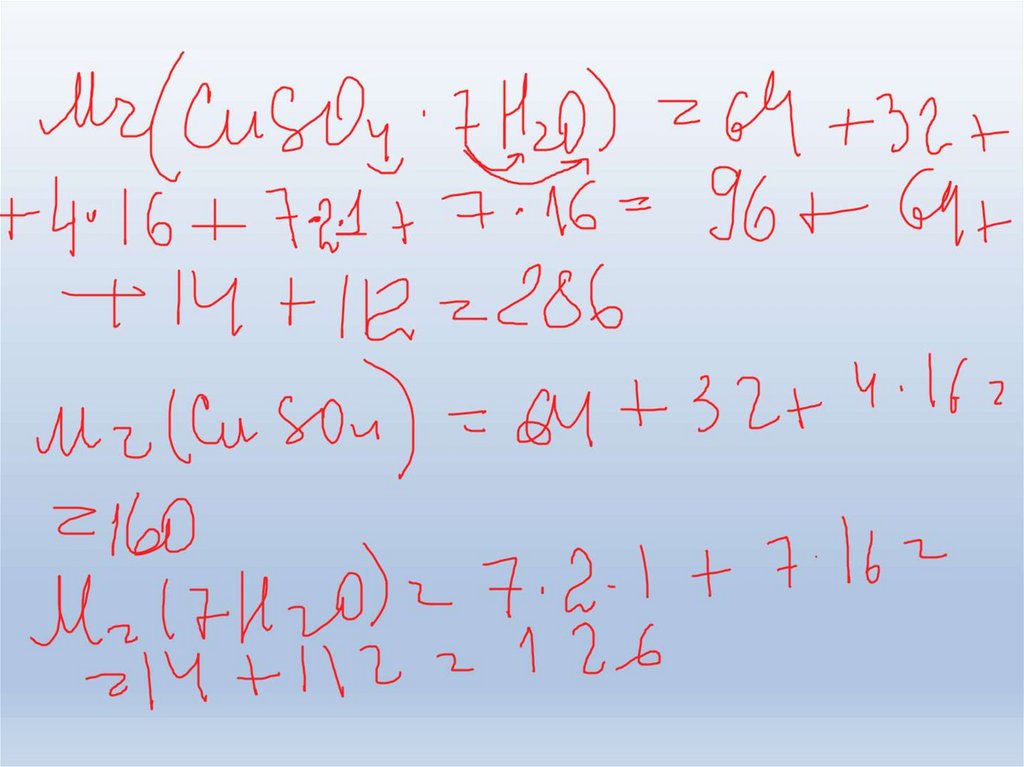 Mr(CuSO₄ · 7H₂O) = 64 + 32 +
+ 4 · 16 + 7·2·1 + 7 · 16 = 96 + 64 +
+ 14 + 112 = 286
Mr(CuSO₄) = 64 + 32 + 4 · 16 =
= 160
Mr(7H₂O) = 7 · 2 · 1 + 7 · 16 =
= 14 + 112 = 126